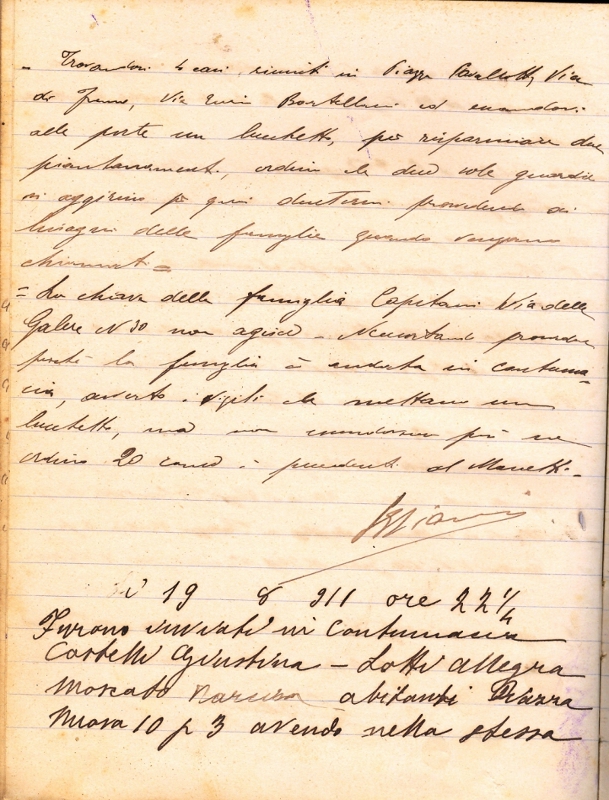 - Trovandosi 4 casi, riuniti in Piazza Cavallotti, Via
di Franco, Via Enrico Bartelloni ed essendovi
alle porte un lucchetto, per risparmiare dei
piantonamenti, ordino che due sole guardie
si aggirino per quei dintorni provvedendo ai
bisogni delle famiglie quando vengono
chiamati =
= La chiave della famiglia Capitani Via delle
Galere N 30 non agisce - Necessitando provvedere
perché la famiglia è andata in contuma-
cia, avverto i vigili che mettano un
lucchetto, ma non essendovene più ne
ordino 20 come i precedenti al Manetti -
19 8 911 ore 22 1/4
Furono inviati in Contumacia
Castelli Giustina - Lotti Allegra
Moscato abitanti Piazza
Nuova 10 p 3 avendo nella stessa